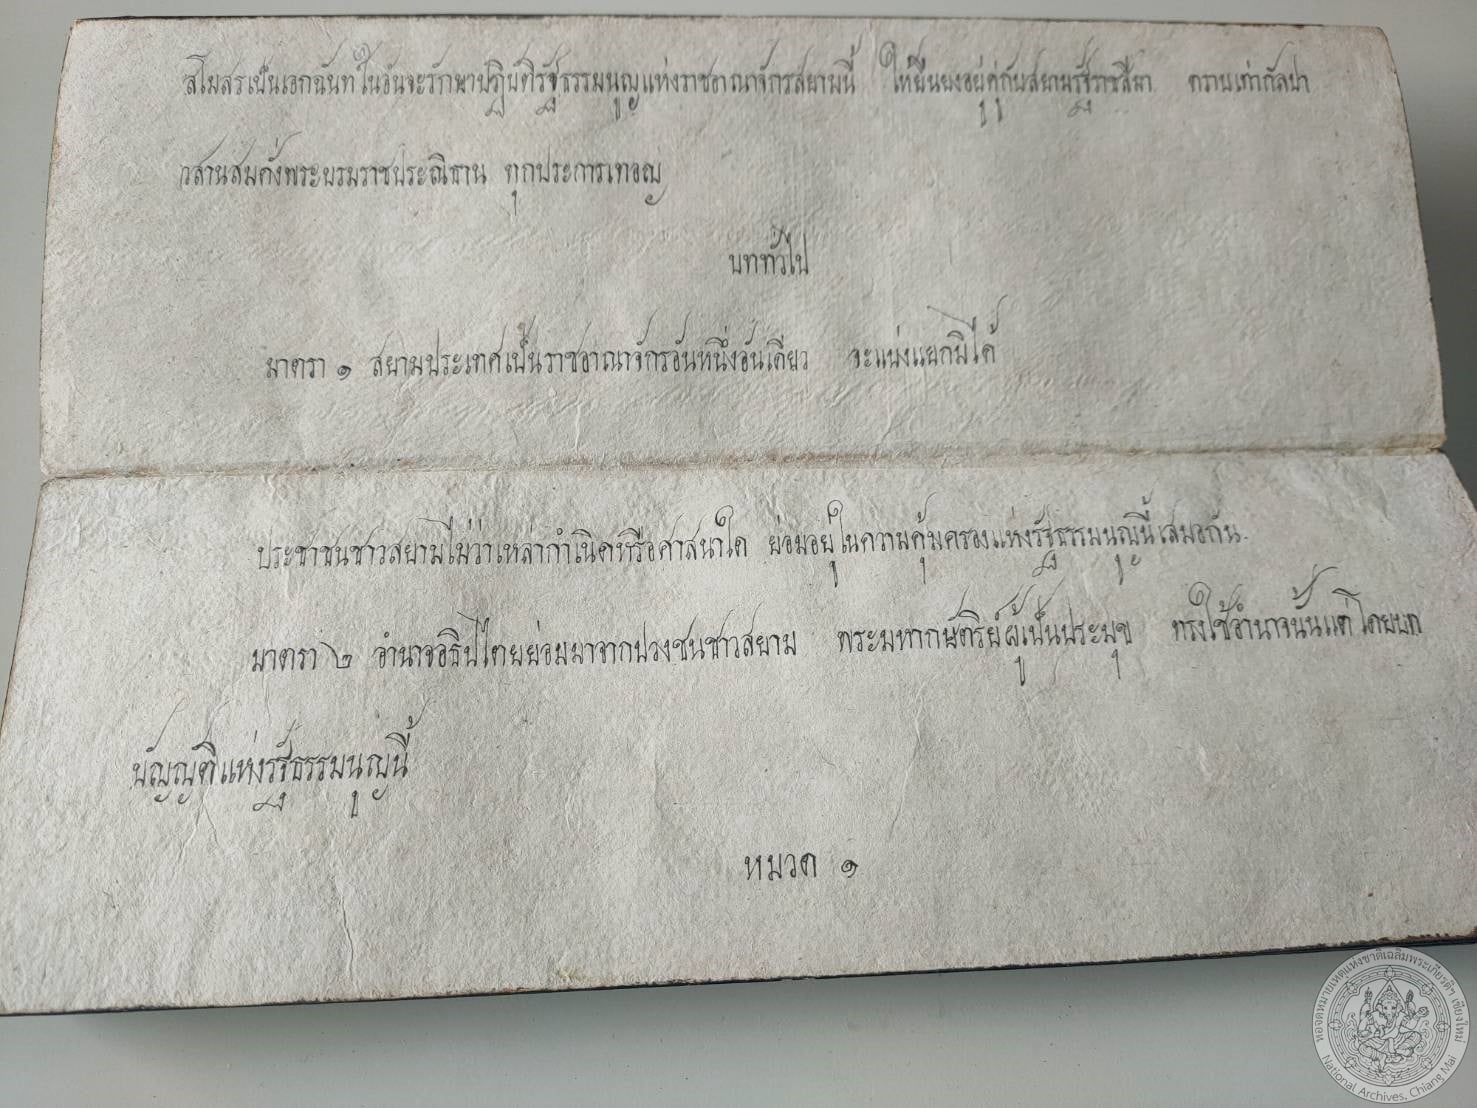 สโมสรเป็นเอกฉันท์ในอันจะรักษาปฏิบัติรัฐธรรมนูญแห่งราชอาณาจักรสยามนี้ ให้ยืนยงอยู่คู่กับสยามรัฐราชสีมา ตราบเท่ากัลปา
วสานสมดั่งพระบรมราชประณิธาน ทุกประการเทอญ
บททั่วไป
มาตรา ๑ สยามประเทศเป็นราชอาณาจักรอันหนึ่งอันเดียว จะแบ่งแยกมิได้
ประชาชนชาวสยามไม่ว่าเหล่ากำเนิดหรือศาสนาใด ย่อมอยู่ในความคุ้มครองแห่งรัฐธรรมนูญนี้เสมอกัน
มาตรา ๒ อำนาจอธิปไตยย่อมมาจากปวงชนชาวสยาม พระมหากษัตริย์ผู้เป็นประมุข ทรงใช้อำนาจนั้นแต่โดยบท
บัญญัติแห่งรัฐธรรมนูญนี้
หมวด ๑
หอจดหมายเหตุแห่งชาติเฉลิมพระเกียรติฯ เชียงใหม่
National Archives, Chiang Mai